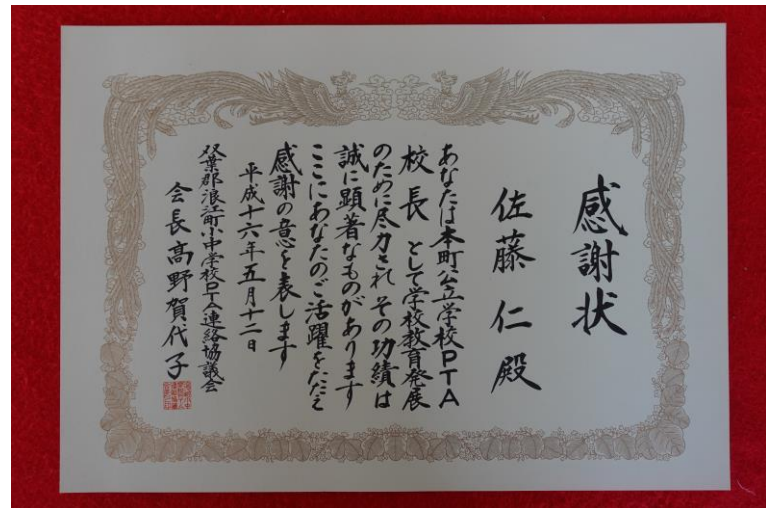 感謝状
佐藤仁殿
あなたは本町公立学校PTA
校長として学校教育発展
のために尽力され その功績は
誠に顕著なものがあります
ここにあなたのご活躍をたたえ
感謝の意を表します
平成十六年五月十二日
双葉郡浪江町小中学校PTA連絡協議会
会長高野賀代子